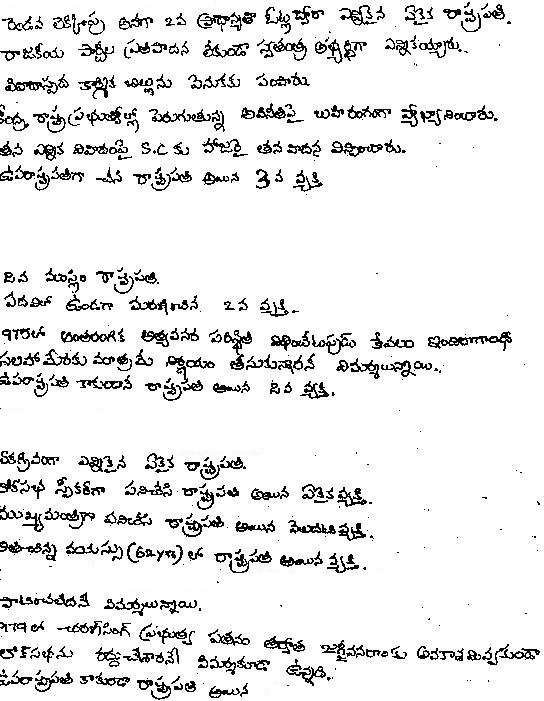 రెండవ లెక్కింపు అనగా 2వ ప్రాధాన్యతా ఓట్ల ద్వారా ఎన్నికైన ఏకైక రాష్ట్రపతి.
రాజకీయ పార్టీల ప్రతిపాదన లేకుండా స్వతంత్ర అభ్యర్థిగా ఎన్నికయ్యారు.
వివాదాస్పద కార్మిక బిల్లును వెనుకకు పంపారు
కేంద్ర, రాష్ట్ర ప్రభుత్వాల్లో పెరుగుతున్న అవినీతిపై బహిరంగంగా వ్యాఖ్యానించారు.
తన ఎన్నిక వివాదంపై S.C కు హాజరై తన వాదన విన్పించారు.
ఉపరాష్ట్రపతిగా చేసి రాష్ట్రపతి అయిన 3 వ వ్యక్తి
2వ ముస్లిం రాష్ట్రపతి.
పదవిలో ఉండగా మరణించిన 2 వ వ్యక్తి.
1975లో అంతరంగిక అత్యవసర పరిస్థితి విధించేటపుడు కేవలం ఇందిరాగాంధీ
సలహా మేరకు మాత్రమే నిర్ణయం తీసుకున్నారనే విమర్శలున్నాయి.
ఉపరాష్ట్రపతి కాకుండానే రాష్ట్రపతి అయిన 2వ వ్యక్తి.
ఏకగ్రీవంగా ఎన్నికైన ఏకైక రాష్ట్రపతి.
లోక్‌సభ స్పీకర్‌గా పనిచేసి రాష్ట్రపతి అయిన ఏకైక వ్యక్తి.
ముఖ్యమంత్రిగా పనిచేసి రాష్ట్రపతి అయిన మొదటి వ్యక్తి.
అతిచిన్న వయస్సు (62yrs) లో రాష్ట్రపతి అయిన వ్యక్తి.
పాటించలేదనే విమర్శలున్నాయి.
1979 లో చరణ్‌సింగ్ ప్రభుత్వ పతనం తర్వాత జగ్జీవన్‌రాంకు అవకాశమివ్వకుండా
లోక్‌సభను రద్దుచేశారనే విమర్శకూడా ఉన్నది.
ఉపరాష్ట్రపతి కాకుండా రాష్ట్రపతి అయిన